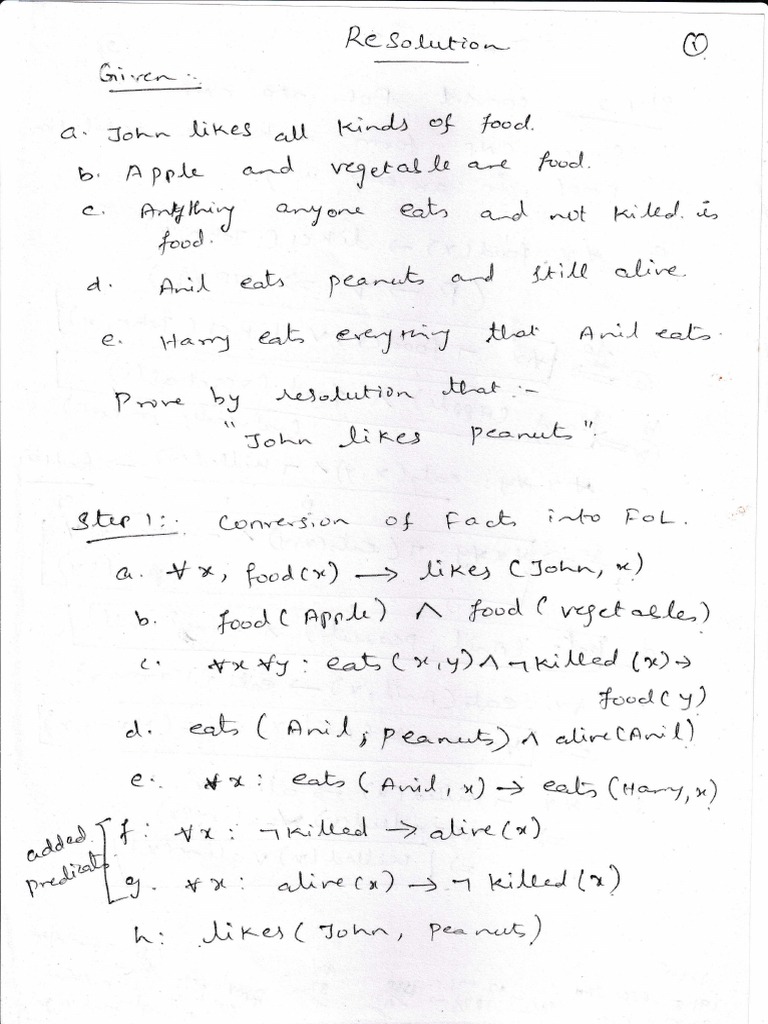 Resolution
①
Given :-
a. John likes all kinds of food.
b. Apple and vegetable are food.
c. Anything anyone eats and not killed is
food.
d. Anil eats peanuts and still alive.
e. Harry eats everything that Anil eats.
Prove by resolution that :-
"John likes peanuts".
Step 1:- Conversion of Facts into FOL.
a. ∀x, food(x) → likes (John, x)
b. food (Apple) ∧ food (vegetables)
c. ∀x ∀y : eats (x, y) ∧ ¬killed (x) →
food(y)
d. eats (Anil, peanuts) ∧ alive(Anil)
e. ∀x : eats (Anil, x) → eats (Harry, x)
added
predicats
f : ∀x : ¬killed → alive(x)
g. ∀x : alive(x) → ¬ killed(x)
h: likes (John, Peanuts)